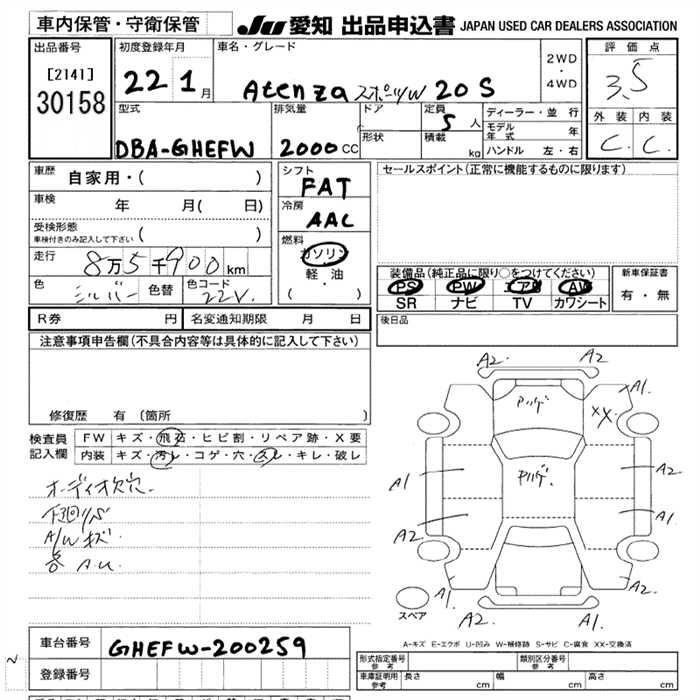 車内保管・守衛保管
JU 愛知 出品申込書 JAPAN USED CAR DEALERS ASSOCIATION
出品番号
[2141]
30158
初度登録年月
22 1月
車名・グレード
Atenza スポーツW 20S
2WD
・
4WD
評価点
3.5
外装 内装
C. C.
型式
DBA-GHEFW
排気量
2000cc
ドア
形状
定員
5人
積載
kg
ディーラー・並行
モデル年式 年
ハンドル 左・右
車歴 自家用・( )
車検 年 月( 日)
受検形態
車検付きのみ記入して下さい ( )
走行 8万5千900km
色 シルバー 色替 色コード 22V.
シフト
FAT
冷房
AAC
燃料
ガソリン
軽・油
( ・ )
セールスポイント(正常に機能するものに限ります)
装備品(純正品に限り○をつけてください)
PS PW エアB AW
SR ナビ TV カワシート
新車保証書
有・無
R券 円 名変通知期限 月 日
後日品
注意事項申告欄(不具合内容等は具体的に記入して下さい)
修復歴 有(箇所 )
検査員記入欄
FW キズ・飛石・ヒビ割・リペア跡・X要
内装 キズ・汚レ・コゲ・穴・スレ・キレ・破レ
オーディオ欠穴.
下回りS
A/Wキズ
各 A.U.
A2. A2
A1.
XX.
Pハゲ
Pハゲ.
A1 A2
A2. A1.
A1 A2.
A2. A1.
スペア
A-キズ E-エクボ U-凹み W-補修跡 S-サビ C-腐食 XX-交換済
車台番号 GHEFW-200259
登録番号
形式指定番号 参考
類別区分番号 参考
車庫証明用 参考 長さ cm 幅 cm 高さ cm